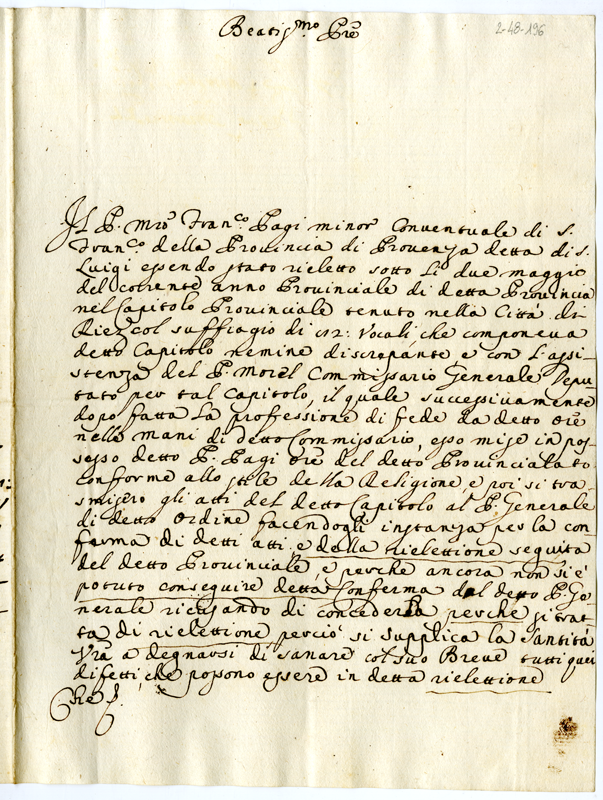 Beatis.mo Pre
2-48-196
Il P. Mro Fran.co Pagi minor Conventuale di S.
Fran.co della Provincia di Provenza detta di S.
Luigi essendo stato rieletto sotto li due maggio
del corrente anno Provinciale di detta Provincia
nel Capitolo Provinciale tenuto nella Città di
Riez col suffragio di 112: Vocali, che componeva
detto Capitolo nemine discrepante e con l'assi-
stenza del P. Morel Commissario Generale Depu
tato per tal Capitolo, il quale successivamente
dopo fatta la professione di fede da detto Pre
nelle mani di detto Commissario, esso mise in pos-
sesso detto P. Pagi del detto Provincialato
conforme allo stile della Religione e poi si tra-
smisero gli atti del detto Capitolo al P. Generale
di detto ordine facendogli instanza per la con-
ferma di detti atti e della rielettione seguita
del detto Provinciale, e perche ancora non si è
potuto conseguire detta Conferma dal detto P. Ge
nerale ricusando di concederla perche si trat
ta di rielettione perciò si supplica la Santità
Vra a degnarsi di sanare col suo Breve tutti quei
difetti, che possono essere in detta rielettione
Che